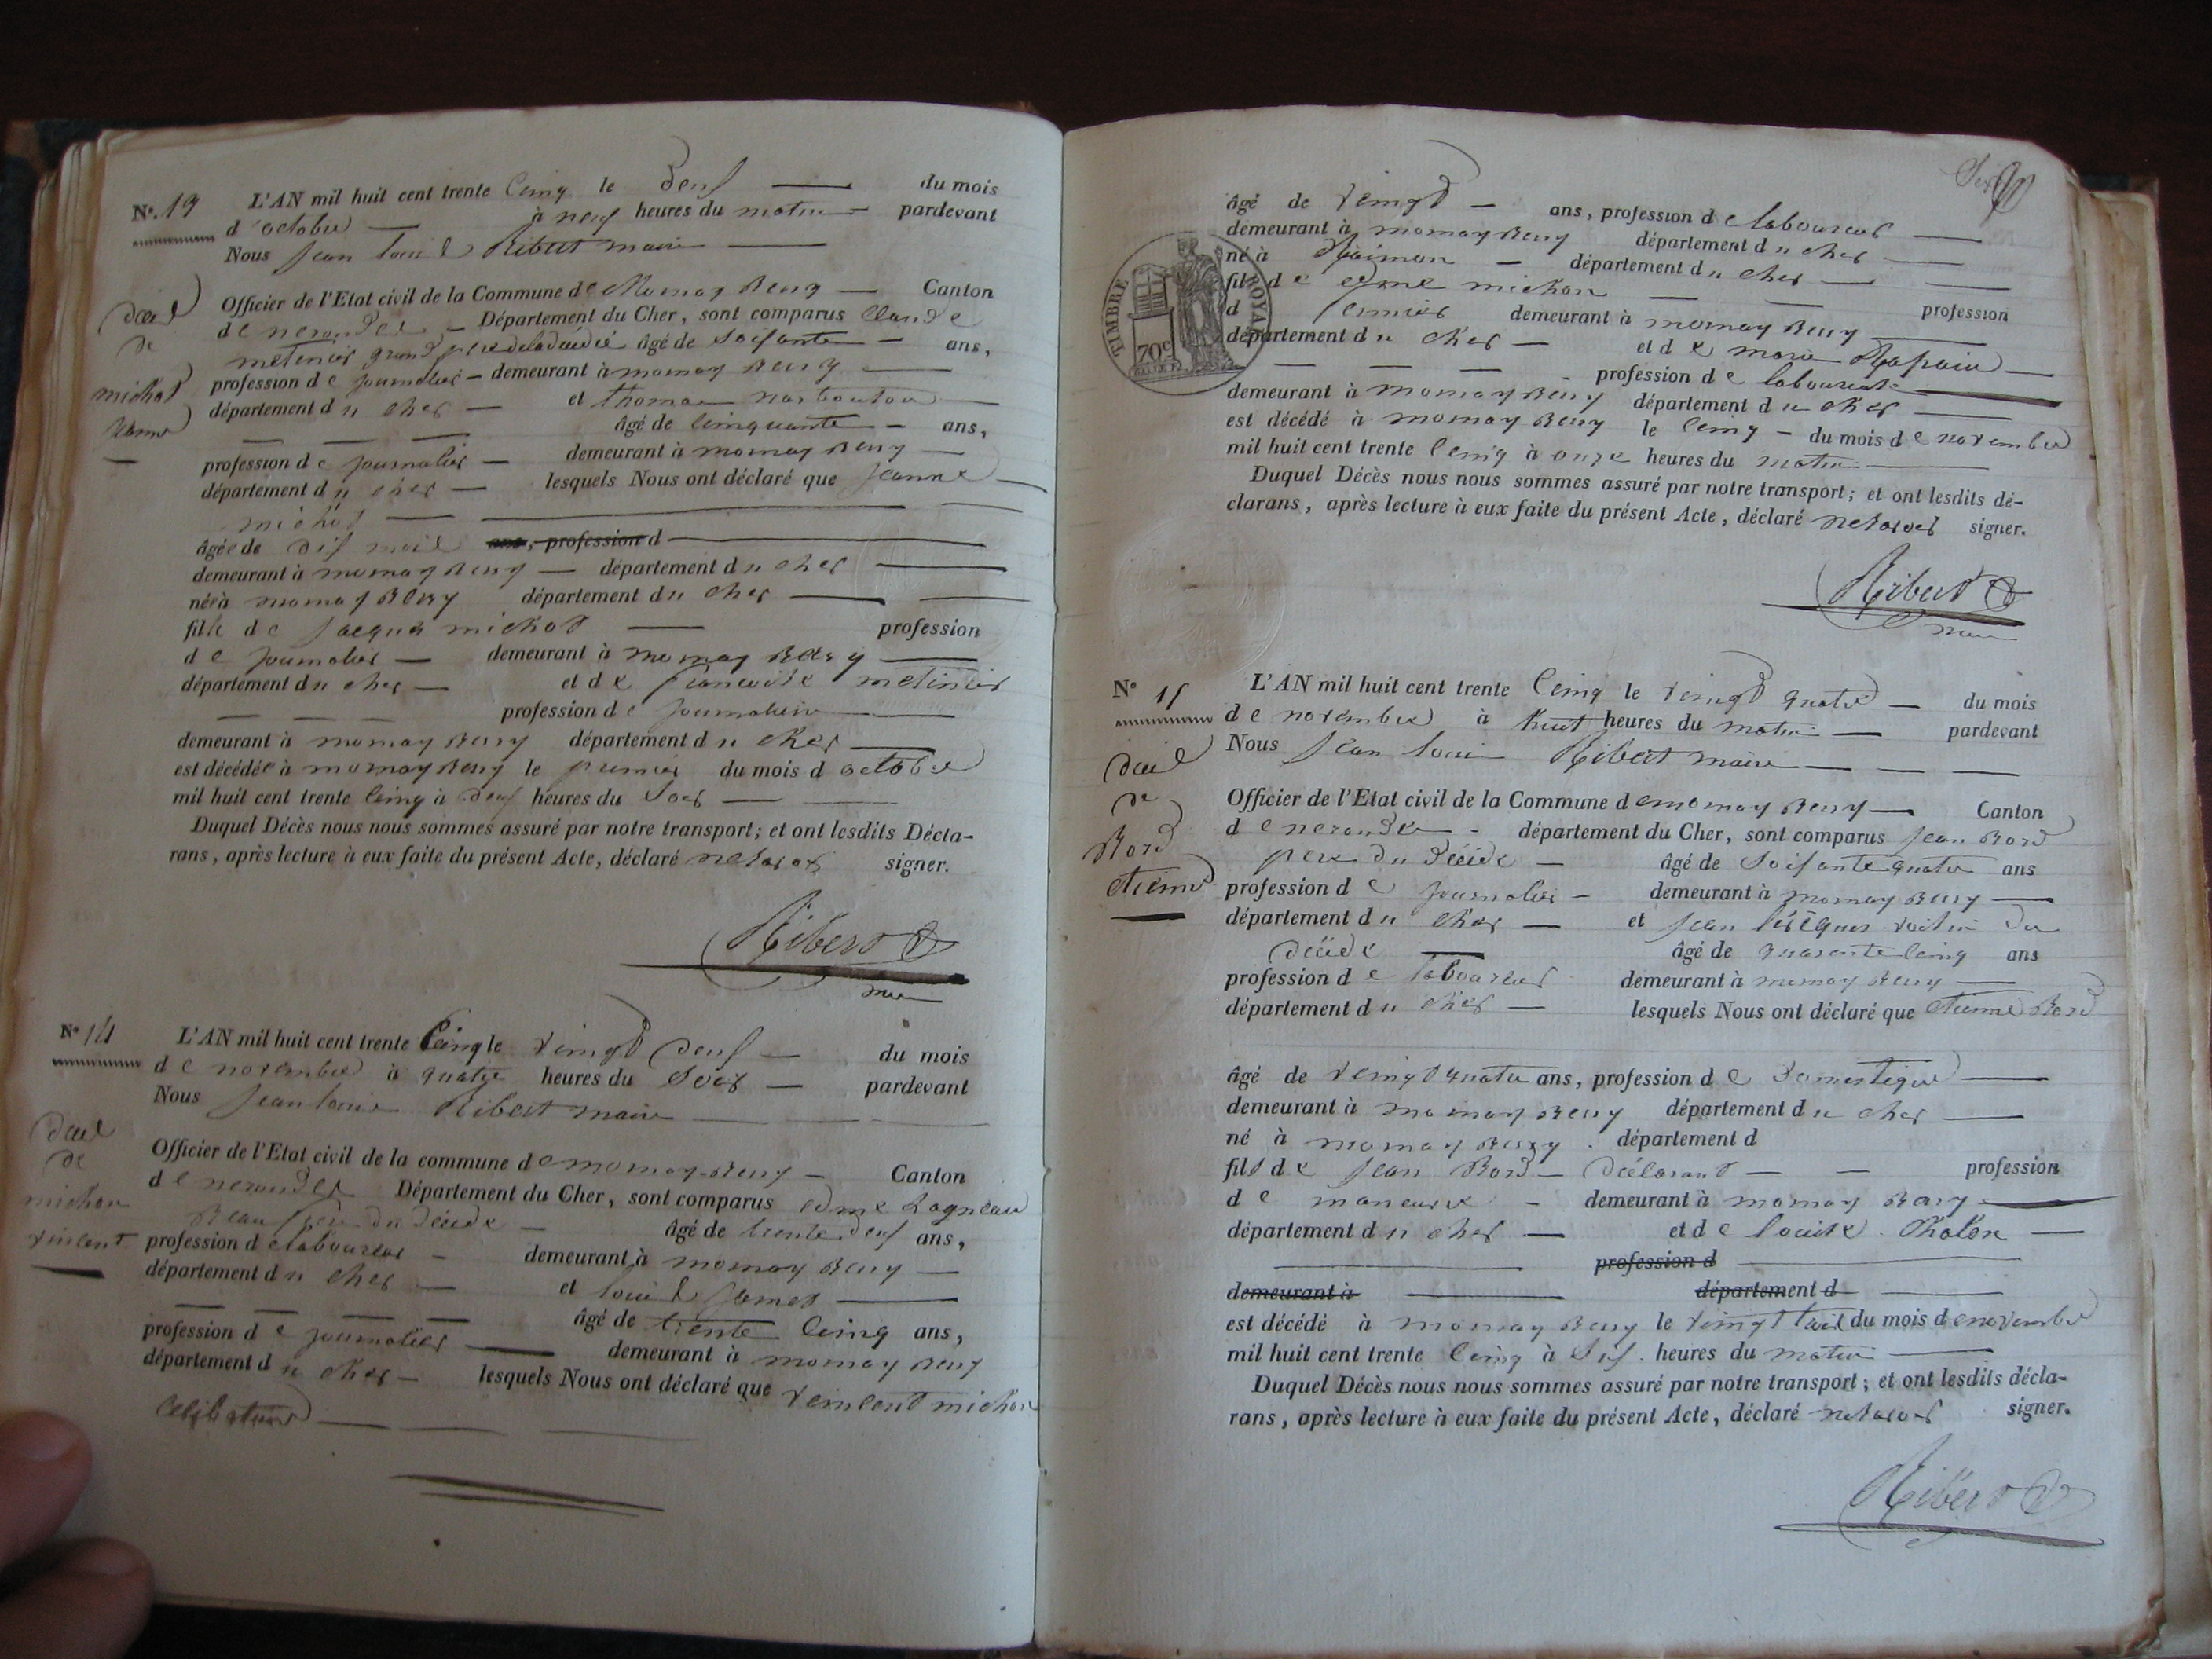 N°. 13
L'AN mil huit cent trente Cinq le deux du mois
d'octobre à neuf heures du matin pardevant
Nous Jean Louis Ribert maire
décès
de
michot
Officier de l'Etat civil de la Commune de Mornay Berry Canton
de nerondes Département du Cher, sont comparus Claude
metenier grand pere de la décédée âgé de Soisante ans,
profession de journalier demeurant à mornay Berry
département du cher et thomas
âgé de Cinquante ans,
profession de journalier demeurant à mornay Berry
département du cher lesquels Nous ont déclaré que Jeanne
michot
âgée de dix mois ans, profession d
demeurant à mornay Berry département du cher
née à mornay Berry département du cher
fille de Jacques michot profession
de journalier demeurant à mornay Berry
département du cher et de francoise metenier
profession de journaliere
demeurant à mornay Berry département du cher
est décédée à mornay Berry le premier du mois d octobre
mil huit cent trente Cinq à deux heures du Soir
Duquel Décès nous nous sommes assuré par notre transport; et ont lesdits Décla-
rans, après lecture à eux faite du présent Acte, déclaré ne savoir signer.
Ribert
N° 14
L'AN mil huit cent trente Cinq le vingt deux du mois
de novembre à quatre heures du Soir pardevant
Nous Jean louis Ribert maire
décès
de
michon
vincent
Officier de l'Etat civil de la commune de mornay-Berry Canton
de nerondes Département du Cher, sont comparus edme Lagneau
Beau frere du décédé âgé de trente deux ans,
profession de laboureur demeurant à mornay Berry
département du cher et louis Jamet
âgé de trente Cinq ans,
profession de journalier demeurant à mornay Berry
département du cher lesquels Nous ont déclaré que veincent michon
Celibataire
âgé de veingt ans, profession de laboureur
demeurant à mornay Berry département du cher
né à département du cher
fils de edme michon profession
d fermier demeurant à mornay Berry
département du cher et de marie
profession de laboureur
demeurant à mornay Berry département du cher
est décédé à mornay Berry le Cinq du mois de novembre
mil huit cent trente Cinq à onze heures du matin
Duquel Décès nous nous sommes assuré par notre transport; et ont lesdits dé-
clarans, après lecture à eux faite du présent Acte, déclaré ne savoir signer.
TIMBRE ROYAL
70c
Ribert
N° 15
L'AN mil huit cent trente Cinq le veingt quatre du mois
de novembre à huit heures du matin pardevant
Nous Jean louis Ribert maire
décès
de
Bord
etienne
Officier de l'Etat civil de la Commune de mornay Berry Canton
de nerondes département du Cher, sont comparus Jean Bord
pere du décédé âgé de Soisante quatre ans
profession de journalier demeurant à mornay Berry
département du cher et Jean leveque voisin du
décédé âgé de quarente Cinq ans
profession de laboureur demeurant à mornay Berry
département du cher lesquels Nous ont déclaré que etienne Bord
âgé de veingt quatre ans, profession de domestique
demeurant à mornay Berry département du cher
né à mornay Berry département d
fils de Jean Bord déclarant profession
de maneuvre demeurant à mornay Berry
département du cher et de louise Chalon
profession d
demeurant à département d
est décédé à mornay Berry le veingt trois du mois de novembre
mil huit cent trente Cinq à Six heures du matin
Duquel Décès nous nous sommes assuré par notre transport; et ont lesdits décla-
rans, après lecture à eux faite du présent Acte, déclaré ne savoir signer.
Ribert